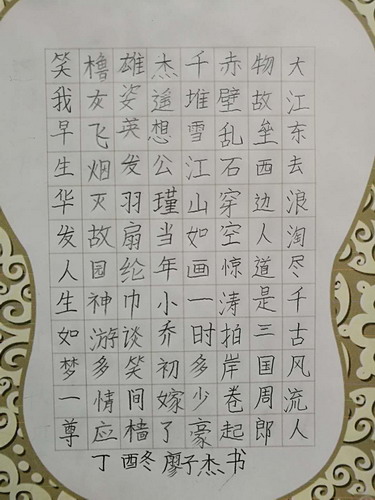 大江东去浪淘尽千古风流人
物故垒西边人道是三国周郎
赤壁乱石穿空惊涛拍岸卷起
千堆雪江山如画一时多少豪
杰遥想公瑾当年小乔初嫁了
雄姿英发羽扇纶巾谈笑间樯
橹灰飞烟灭故园神游多情应
笑我早生华发人生如梦一尊
丁酉冬 廖子杰书